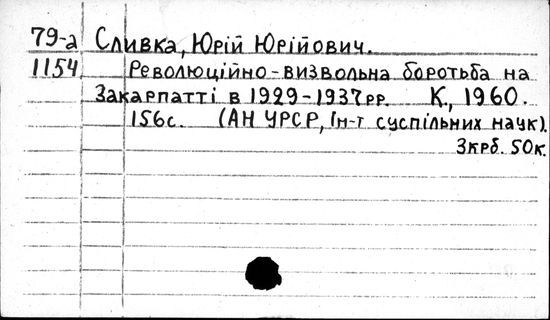 79-а Сливка, Юрій Юрійович.
1154 Революційно-визвольна боротьба на
Закарпатті в 1929-1937рр. К., 1960.
156с. (АН УРСР, Ін-т суспільних наук).
3крб. 50к.